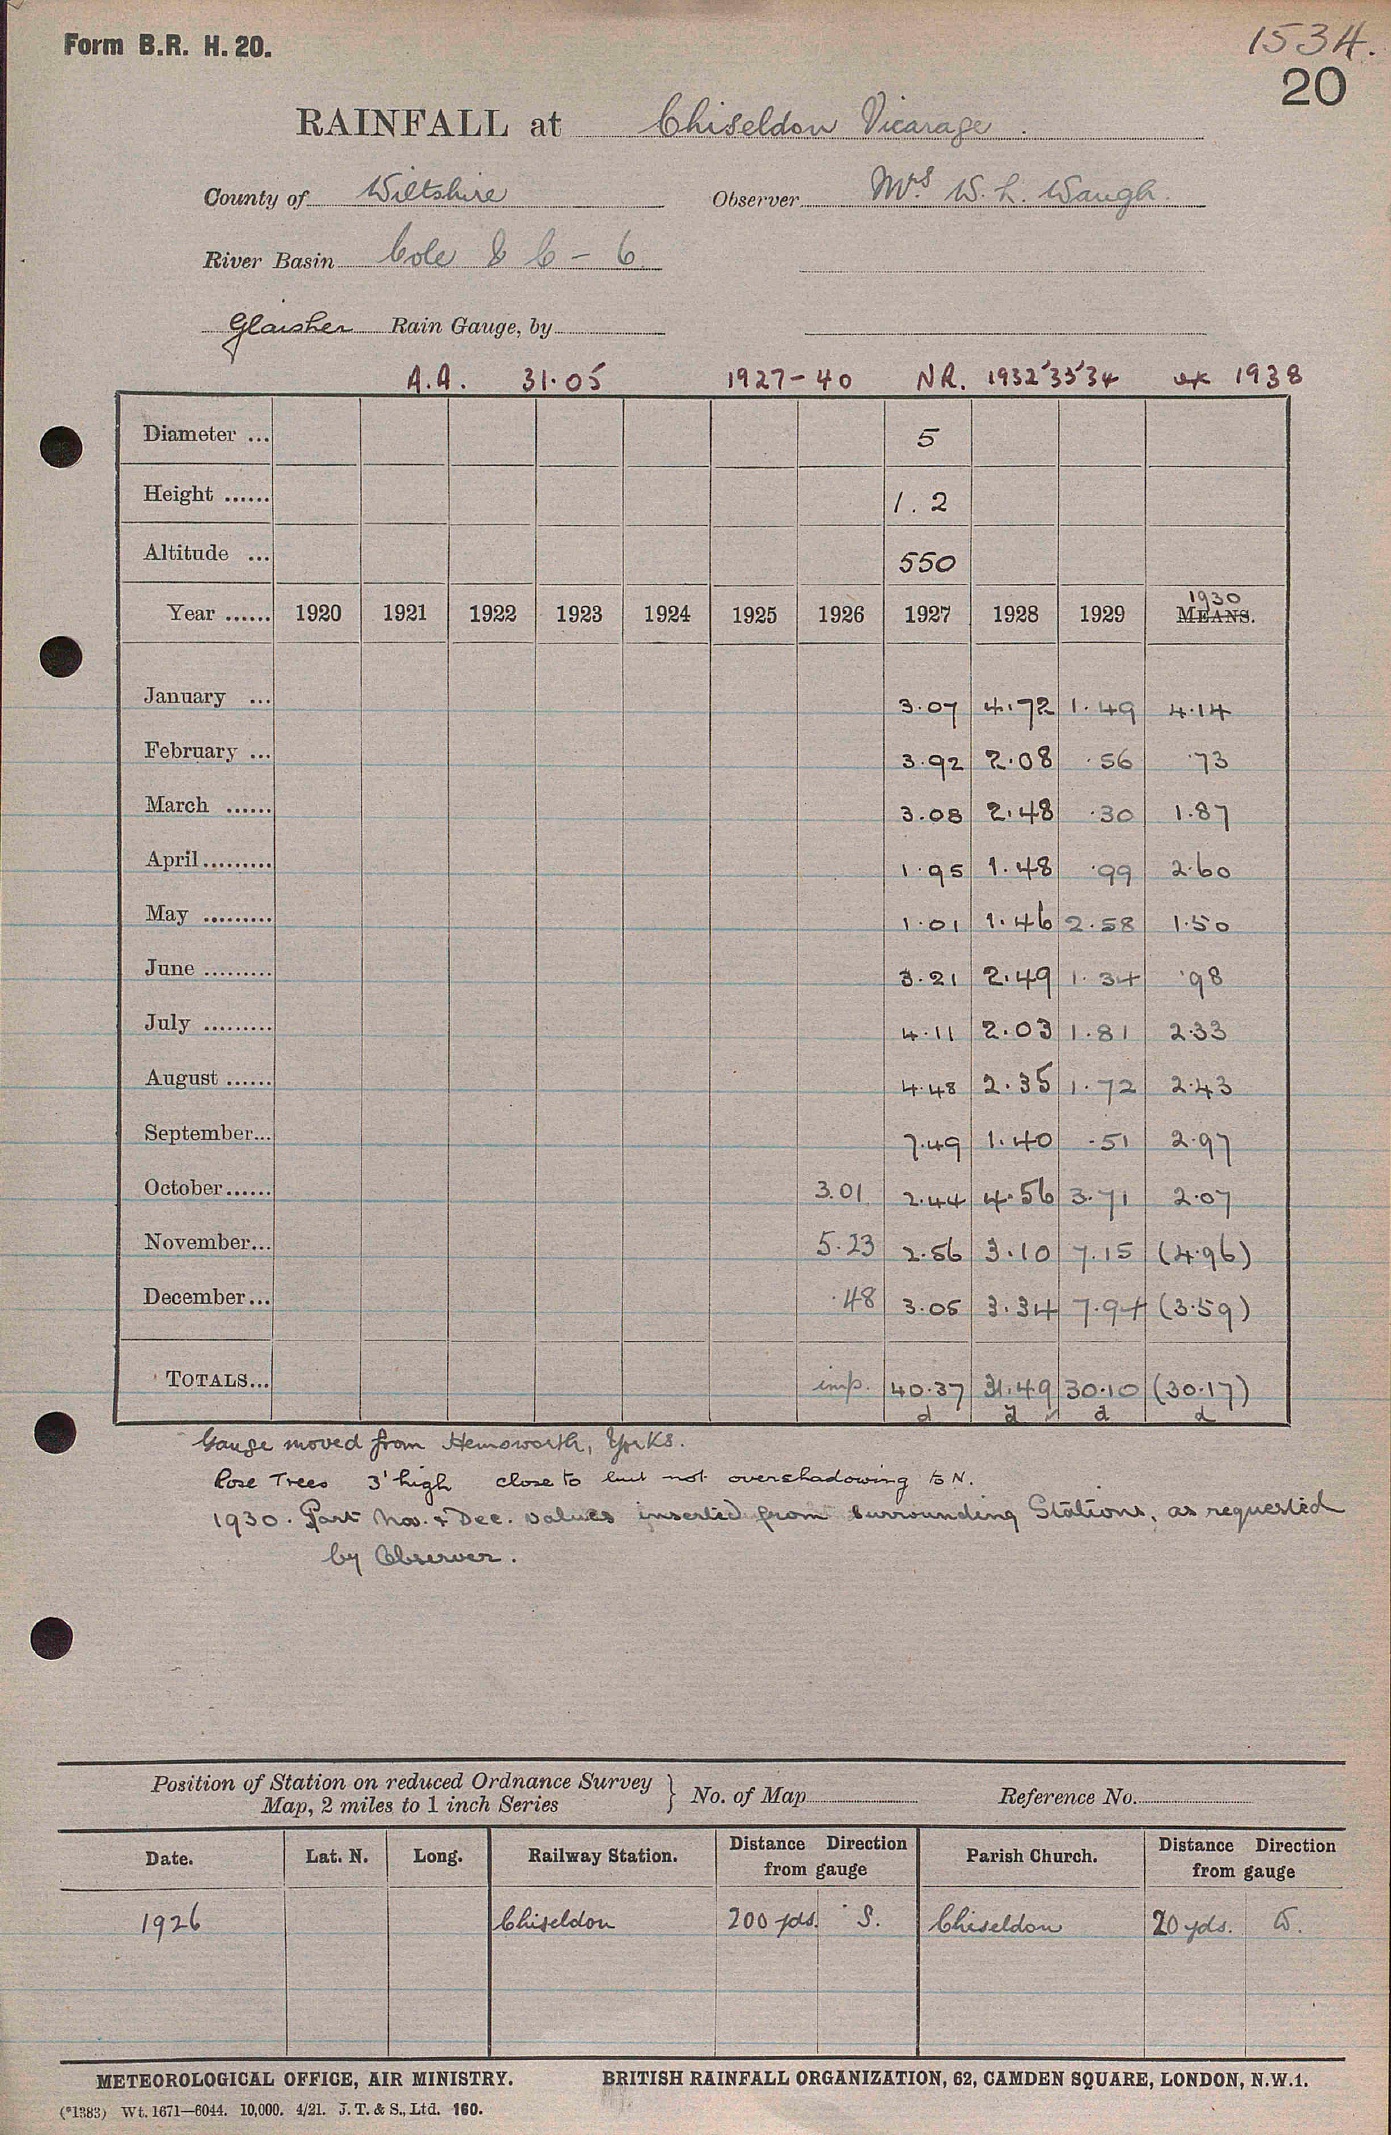 Form B.R. H. 20.
1534.
20
RAINFALL at Chiseldon Vicarage.
County of Wiltshire Observer Mrs. W. L. Waugh.
River Basin Cole & C - 6
Glaisher Rain Gauge, by
A.A. 31.05 1927-40 NR. 1932'33'34 ex 1938
Diameter ... 5
Height ...... 1.2
Altitude ... 550
1930
Year ...... 1920 1921 1922 1923 1924 1925 1926 1927 1928 1929 MEANS.
January ... 3.07 4.72 1.49 4.14
February ... 3.92 2.08 .56 .73
March ...... 3.08 2.48 .30 1.87
April ......... 1.95 1.48 .99 2.60
May ......... 1.01 1.46 2.58 1.50
June ......... 3.21 2.49 1.34 .98
July ......... 4.11 2.03 1.81 2.33
August ...... 4.48 2.35 1.72 2.43
September... 7.49 1.40 .51 2.97
October...... 3.01 2.44 4.56 3.71 2.07
November... 5.23 2.56 3.10 7.15 (4.96)
December... .48 3.05 3.34 7.94 (3.59)
TOTALS... imp. 40.37 31.49 30.10 (30.17)
d d d d
Gauge moved from Hemsworth, Yorks.
Rose Trees 3' high close to but not overshadowing to N.
1930. Part Nov. & Dec. values inserted from surrounding Stations, as requested
by Observer.
Position of Station on reduced Ordnance Survey
Map, 2 miles to 1 inch Series } No. of Map Reference No.
Date. Lat. N. Long. Railway Station. Distance Direction from gauge Parish Church. Distance Direction from gauge
1926 Chiseldon 200 yds. S. Chiseldon 20 yds. W.
METEOROLOGICAL OFFICE, AIR MINISTRY. BRITISH RAINFALL ORGANIZATION, 62, CAMDEN SQUARE, LONDON, N.W.1.
(*1383) Wt. 1671—6044. 10,000. 4/21. J. T. & S., Ltd. 160.